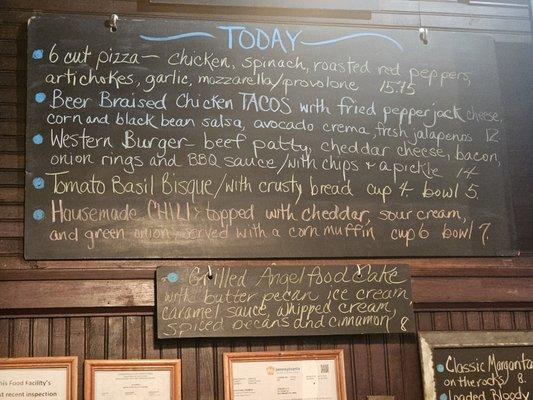 TODAY
6 cut pizza— chicken, spinach, roasted red peppers,
artichokes, garlic, mozzarella/provolone 15.75
Beer Braised Chicken TACOS with fried pepperjack cheese,
corn and black bean salsa, avocado crema, fresh jalapenos 12
Western Burger— beef patty, cheddar cheese, bacon,
onion rings and BBQ sauce/with chips + a pickle 14
Tomato Basil Bisque/with crusty bread cup 4. bowl 5.
Housemade CHILI: topped with cheddar, sour cream,
and green onion, served with a corn muffin cup 6 bowl 7.
Grilled Angel food Cake
with butter pecan ice cream
caramel sauce, whipped cream,
spiced pecans and cinnamon 8
This Food Facility's
recent inspection
pennsylvania
Classic Margarita
on the rocks 8.
Loaded Bloody